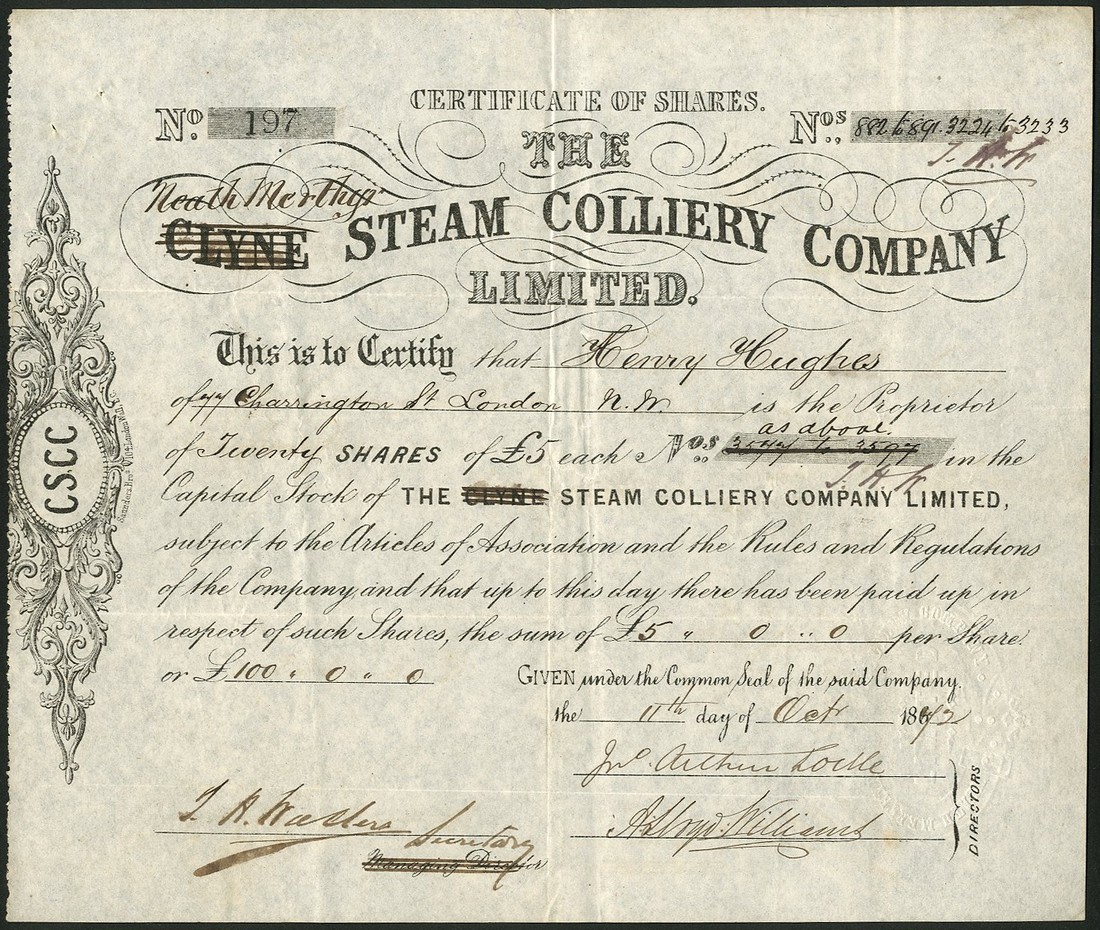 CERTIFICATE OF SHARES.
No. 197
Nos., 882 to 891. 3224 to 3233
THE
Neath Merthyr
CLYNE STEAM COLLIERY COMPANY
LIMITED.
This is to Certify that Henry Hughes
of 77 Charrington St London N.W. is the Proprietor
as above.
of Twenty SHARES of £5 each Nos in the
Capital Stock of THE CLYNE STEAM COLLIERY COMPANY LIMITED,
subject to the Articles of Association and the Rules and Regulations
of the Company, and that up to this day there has been paid up, in
respect of such Shares, the sum of £5 " 0 " 0 per Share.
or £100 " 0 " 0
GIVEN under the Common Seal of the said Company.
the 11th day of Octr 1872
Jno. Arthur
Lloyd Williams
DIRECTORS
Secretary
Managing Director
CSCC
Saunders Bros